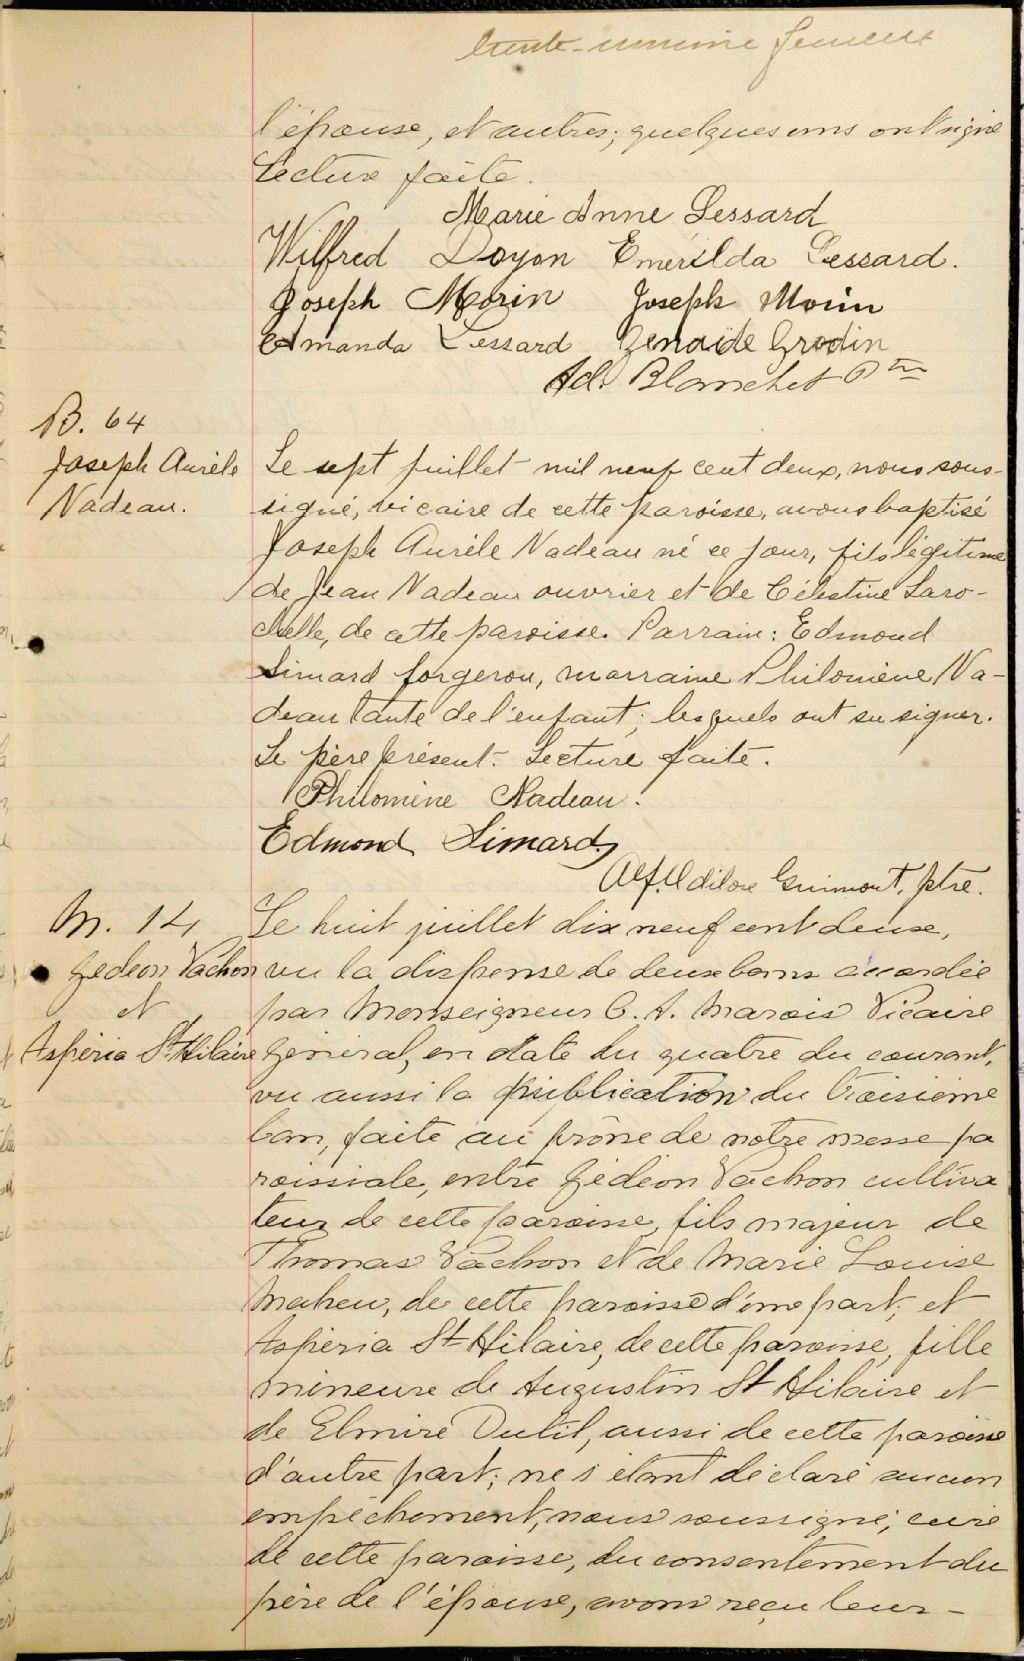 trente-unième feuillet
l'épouse, et autres; quelques uns ont signé
Lecture faite.
Marie Anne Lessard
Wilfred Doyon Emérilda Lessard.
Joseph Morin Joseph Morin
Amanda Lessard Zenaïde Grodin
Ad. Blanchet Ptre
B. 64
Joseph Aurèle
Nadeau.
Le sept juillet mil neuf cent deux, nous sous-
signé, vicaire de cette paroisse, avons baptisé
Joseph Aurèle Nadeau né ce jour, fils légitime
de Jean Nadeau ouvrier et de Célestine Laro-
chelle, de cette paroisse. Parrain: Edmond
Simard forgeron, marraine Philomène Na-
deau tante de l'enfant; lesquels ont su signer.
Le père présent. Lecture faite.
Philomène Nadeau.
Edmond Simard
Alf. Odilon Guimont, ptre.
M. 14
Gédeon Vachon
et
Aspéria St Hilaire
Le huit juillet dix neuf cent deux,
vu la dispense de deux bans accordée
par Monseigneur C. A. Marois Vicaire
Général, en date du quatre du courant,
vu aussi la publication du troisième
ban, faite au prône de notre messe pa
roissiale, entre Gédéon Vachon cultiva
teur de cette paroisse, fils majeur de
Thomas Vachon et de Marie Louise
Maheu, de cette paroisse d'une part; et
Aspéria St Hilaire, de cette paroisse, fille
mineure de Augustin St Hilaire et
de Elmire Dutil, aussi de cette paroisse
d'autre part; ne s'étant déclaré aucun
empêchement, nous soussigné, curé
de cette paroisse, du consentement du
père de l'épouse, avons reçu leur-